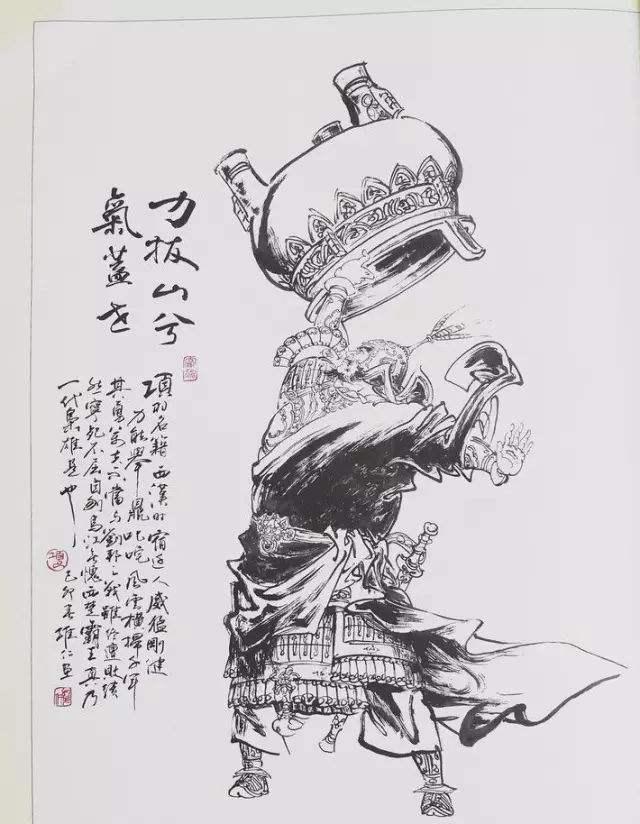 力拔山兮
氣蓋世
項羽名籍西漢時宿迁人威猛剛健
力能舉鼎叱咤風雲橫掃千軍
其勇萬夫不當与劉邦之战雖经連敗績
然寧死不屈自刎烏江無愧西楚霸王真乃
一代梟雄是也
己卯雄仁